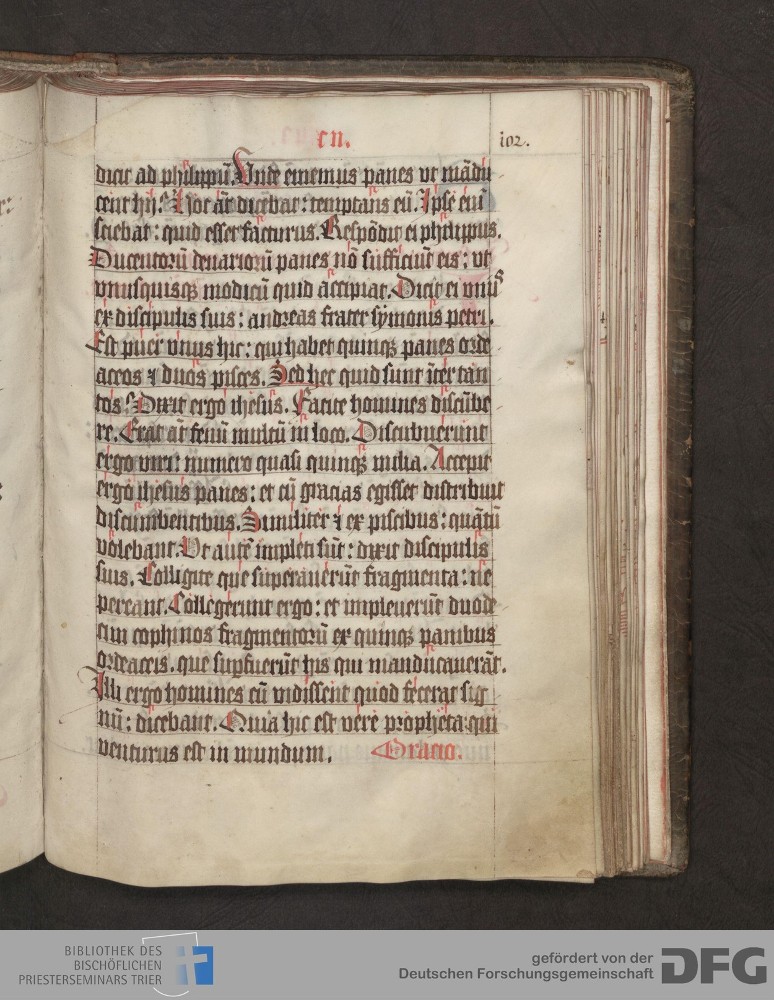 cn.
102.
dicit ad philippū. Vnde ememus panes vt mādu
cent hij? Hoc āt dicebat: temptans eū. Ipse eni
sciebat: quid esset facturus. Respōdit ei philippus.
Ducentorū denariorū panes nō sufficiūt eis: vt
vnusquisqꝫ modicū quid accipiat. Dicit ei vnus
ex discipulis suis: andreas frater symonis petri.
Est puer vnus hic: qui habet quinqꝫ panes orde
aceos ⁊ duos pisces. Sed hec quid sunt īter tan
tos? Dixit ergo ihesus. Facite homines discūbe
re. Erat āt fenū multū in loco. Discubuerunt
ergo viri: numero quasi quinqꝫ milia. Accepit
ergo ihesus panes: et cū gracias egisset distribuit
discumbentibus. Similiter ⁊ ex piscibus: quātū
volebant. Vt autē impleti sūt: dixit discipulis
suis. Colligite que superauerūt fragmenta: ne
pereant. Collegerunt ergo: et impleuerūt duode
cim cophinos fragmentorū ex quinqꝫ panibus
ordeaceis. que supfuerūt his qui manducauerāt.
Illi ergo homines cū vidissent quod fecerat sig
nū: dicebant. Quia hic est vere propheta: qui
venturus est in mundum. Oracio.
BIBLIOTHEK DES
BISCHÖFLICHEN
PRIESTERSEMINARS TRIER
gefördert von der
Deutschen Forschungsgemeinschaft DFG